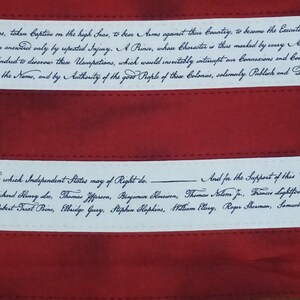 taken Captive on the high Seas, to bear Arms against their Country, to become the Executio
answered only by repeated Injury. A Prince, whose Character is thus marked by every A
to disavow these Usurpations, which would inevitably interrupt our Connexions and Co
the Name, and by Authority of the good People of these Colonies, solemnly Publish and
which Independent States may of Right do. And for the Support of this
Richard Henry Lee, Thomas Jefferson, Benjamin Harrison, Thomas Nelson Jr., Francis Lightfoot
Robert Treat Paine, Elbridge Gerry, Stephen Hopkins, William Ellery, Roger Sherman, Samuel